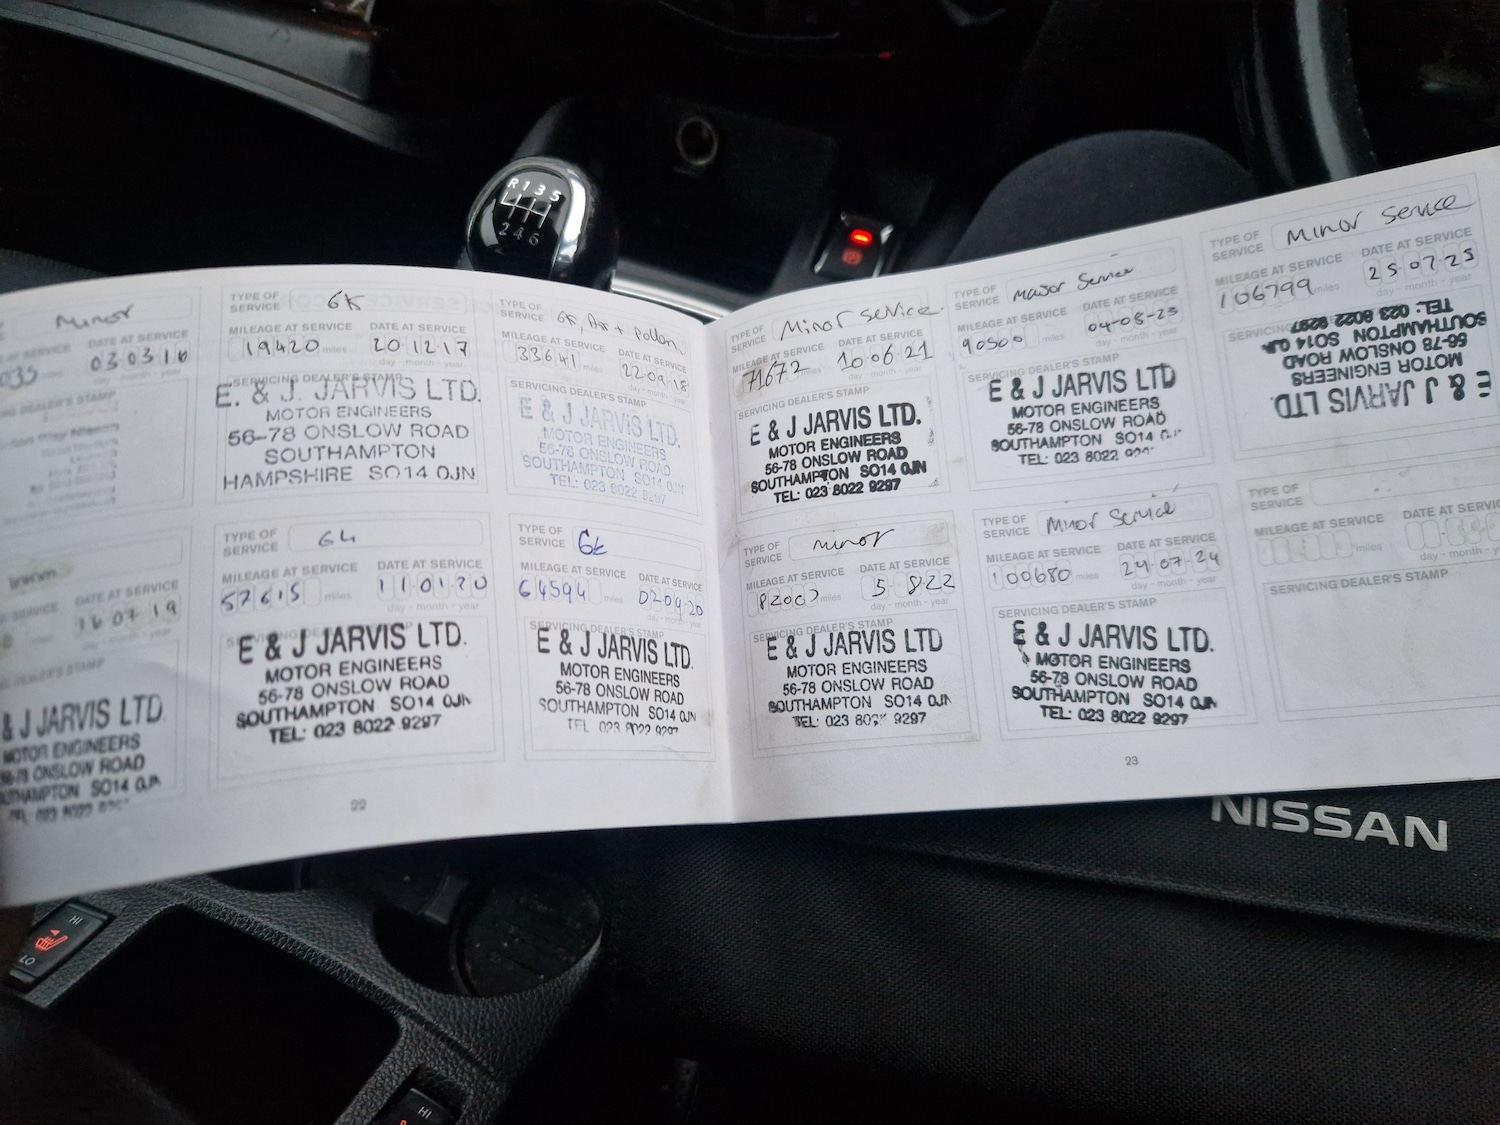 R 1 3 5
2 4 6
Minor
AT SERVICE DATE AT SERVICE
03 03 16
day - month - year
DEALER'S STAMP
TYPE OF SERVICE 6K
MILEAGE AT SERVICE DATE AT SERVICE
19420 miles 20 12 17
day - month - year
SERVICING DEALER'S STAMP
E. & J. JARVIS LTD.
MOTOR ENGINEERS
56-78 ONSLOW ROAD
SOUTHAMPTON
HAMPSHIRE SO14 0JN
TYPE OF SERVICE 6K, Air + pollen.
MILEAGE AT SERVICE DATE AT SERVICE
33641 miles 22 09 18
day - month - year
SERVICING DEALER'S STAMP
E & J JARVIS LTD.
MOTOR ENGINEERS
56-78 ONSLOW ROAD
SOUTHAMPTON SO14 0JN
TEL: 023 8022 9297
SERVICE DATE AT SERVICE
miles 16 07 19
day - month - year
DEALER'S STAMP
& J JARVIS LTD
MOTOR ENGINEERS
56-78 ONSLOW ROAD
SO14 0JN
TYPE OF SERVICE 6k
MILEAGE AT SERVICE DATE AT SERVICE
57615 miles 11 01 20
day - month - year
SERVICING DEALER'S STAMP
E & J JARVIS LTD.
MOTOR ENGINEERS
56-78 ONSLOW ROAD
SOUTHAMPTON SO14 0JN
TEL: 023 8022 9297
TYPE OF SERVICE 6k
MILEAGE AT SERVICE DATE AT SERVICE
64594 miles 02 09 20
day - month - year
SERVICING DEALER'S STAMP
E & J JARVIS LTD.
MOTOR ENGINEERS
56-78 ONSLOW ROAD
SOUTHAMPTON SO14 0JN
TEL 023 8022 9297
22
TYPE OF SERVICE Minor service.
MILEAGE AT SERVICE DATE AT SERVICE
71672 miles 10 06 21
day - month - year
SERVICING DEALER'S STAMP
E & J JARVIS LTD.
MOTOR ENGINEERS
56-78 ONSLOW ROAD
SOUTHAMPTON SO14 0JN
TEL: 023 8022 9297
TYPE OF SERVICE Major Service
MILEAGE AT SERVICE DATE AT SERVICE
90500 miles 04-08-23
day - month - year
SERVICING DEALER'S STAMP
E & J JARVIS LTD
MOTOR ENGINEERS
56-78 ONSLOW ROAD
SOUTHAMPTON SO14
TEL: 023 8022
TYPE OF SERVICE Minor Service
MILEAGE AT SERVICE DATE AT SERVICE
106799 miles 25-07-25
day - month - year
SERVICING
E & J JARVIS LTD.
MOTOR ENGINEERS
56-78 ONSLOW ROAD
SOUTHAMPTON SO14 0JN
TEL: 023 8022 9297
TYPE OF SERVICE minor
MILEAGE AT SERVICE DATE AT SERVICE
miles 5 8 22
day - month - year
SERVICING DEALER'S STAMP
E & J JARVIS LTD
MOTOR ENGINEERS
56-78 ONSLOW ROAD
SOUTHAMPTON SO14 0JN
TEL: 023 8022 9297
TYPE OF SERVICE Minor Service
MILEAGE AT SERVICE DATE AT SERVICE
100680 miles 24-07-24
day - month - year
SERVICING DEALER'S STAMP
E & J JARVIS LTD.
MOTOR ENGINEERS
56-78 ONSLOW ROAD
SOUTHAMPTON SO14 0JN
TEL: 023 8022 9297
TYPE OF SERVICE
MILEAGE AT SERVICE DATE AT SERVICE
miles day - month
SERVICING DEALER'S STAMP
23
NISSAN
HI
LO
HI